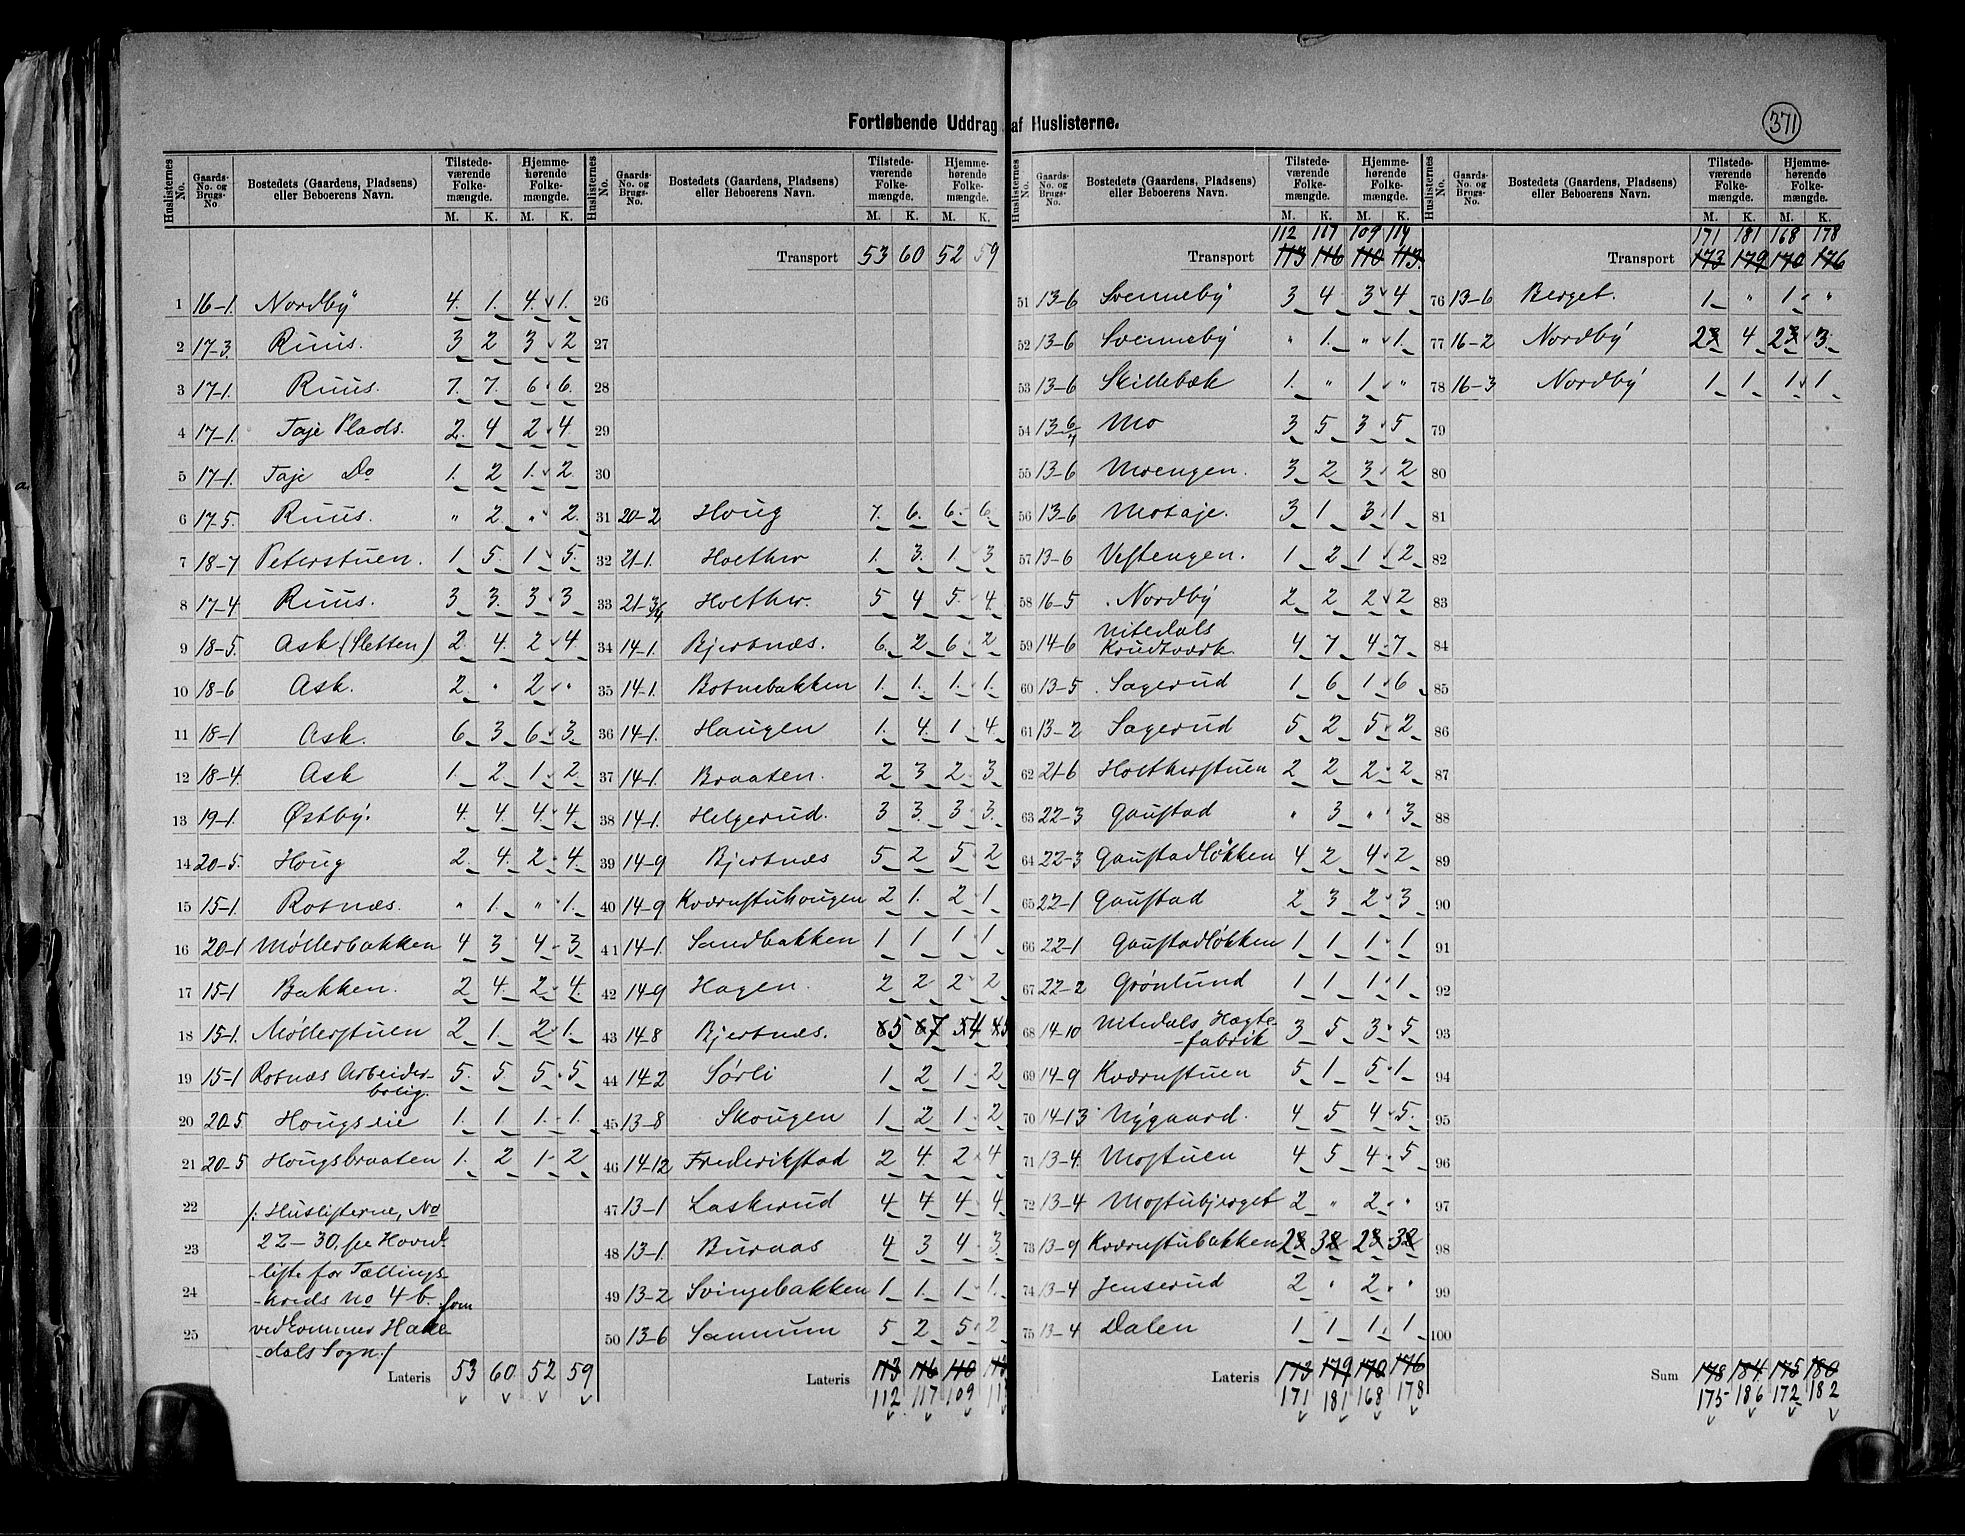 371
Fortløbende Uddrag af Huslisterne.
Huslisternes No. | Gaards-No. og Brugs-No. | Bostedets (Gaardens, Pladsens) eller Beboerens Navn. | Tilstedeværende Folkemængde. M. K. | Hjemmehørende Folkemængde. M. K.
1 16-1. Nordby 4. 1. 4. 1.
2 17-3. Ruus. 3 2 3 2
3 17-1. Ruus. 7. 7. 6 6.
4 17-1. Taje Plads. 2. 4 2 4.
5 17-1. Taje Do 1. 2 1. 2.
6 17-5. Ruus. " 2. " 2.
7 18-7 Peterstuen. 1. 5 1. 5.
8 17-4 Ruus. 3 3. 3. 3
9 18-5. Ask (Sletten) 2. 4. 2 4.
10 18-6 Ask. 2. " 2 "
11 18-1 Ask. 6 3 6 3.
12 18-4. Ask 1. 2 1. 2.
13 19-1. Østby. 4. 4. 4. 4.
14 20-5. Houg 2. 4. 2 4.
15 15-1. Rotnæs. " 1. " 1.
16 20-1 Møllerbakken 4 3 4 3
17 15-1 Bakken. 2 4. 2. 4.
18 15-1. Møllerstuen 2 1. 2 1.
19 15-1 Rotnæs Arbeider-
bolig. 5. 5 5 5
20 20-5 Hougseie 1. 1 1. 1.
21 20-5 Hougsbraaten 1. 2 1. 2
22 /: Huslisterne, No
23 22-30, se Hoved-
-liste for Tællings-
24 -kreds No 4 b. som
25 vedkommer Hake-
-dals Sogn:/
Lateris 53 60 52 59
Transport 53 60 52 59
26
27
28
29
30
31 20-2 Houg 7. 6. 6. 6.
32 21-1. Holther 1. 3. 1. 3
33 21-3/4 Holther. 5 4 5. 4.
34 14-1. Bjertnæs. 6. 2 6. 2
35 14-1. Botnebakken 1. 1. 1. 1.
36 14-1. Haugen 1. 4. 1 4.
37 14-1. Braaten. 2 3 2. 3.
38 14-1. Helgerud. 3 3. 3. 3.
39 14-9 Bjertnæs 5 2 5 2
40 14-9 Kværnstuhougen 2 1. 2 1
41 14-1. Sandbakken 1 1 1 1
42 14-9 Hagen. 2 2 2 2
43 14-8 Bjertnæs. 5 7 4 5
44 14-2 Sørli 1 2 1. 2
45 13-8 Skougen 1 2 1. 2
46 14-12 Frederikstad 2 4. 2 4
47 13-1 Laskerud 4 4 4 4
48 13-1. Buraas 4 3 4 3.
49 13-2 Svingebakken 1 1. 1. 1.
50 13-6 Sannum 5 2 5 2
Lateris 113 116 110 113
112 117 109 11
112 117 109 114
Transport 113 116 110 113.
51 13-6 Svenneby 3 4 3 4
52 13-6 Svenneby " 1. " 1.
53 13-6 Skillebæk 1. " 1 "
54 13-6/7 Mo 3 5 3 5
55 13-6 Moengen. 3 2 3 2
56 13-6 Motaje. 3 1 3 1
57 13-6 Vestengen. 1 2 1 2
58 16-5 Nordby 2 2 2 2
59 14-6 Nitedals
Krudtværk. 4 7 4 7
60 13-5 Sagerud 1 6 1 6
61 13-2 Sagerud 5 2 5 2
62 21-6 Holtherstuen 2 2 2 2
63 22-3 Gaustad " 3 " 3
64 22-3 Gaustadløkken 4 2 4 2
65 22-1 Gaustad 2 3 2 3
66 22-1 Gaustadløkken 1 1 1 1
67 22-2 Grønlund 1 1 1 1
68 14-10 Nitedals Hægte-
-fabrik 3 5 3 5
69 14-9 Kværnstuen 5 1 5 1
70 14-13 Nygaard. 4 5 4 5.
71 13-4. Mostuen 4 5 4 5
72 13-4 Mostubjerget 2 " 2 "
73 13-9 Kværnstubakken 2 3 2 3
74 13-4 Jenserud 2 " 2 "
75 13-4 Dalen 1 1 1 1
Lateris 173 179 170 176
171 181 168 178
171 181 168 178
Transport 173 179 170 176
76 13-6 Berget. 1 " 1 "
77 16-2 Nordby 2 4 2 3.
78 16-3 Nordby 1 1 1 1
79
80
81
82
83
84
85
86
87
88
89
90
91
92
93
94
95
96
97
98
99
100
Sum 178 184 175 180
175 186 172 182